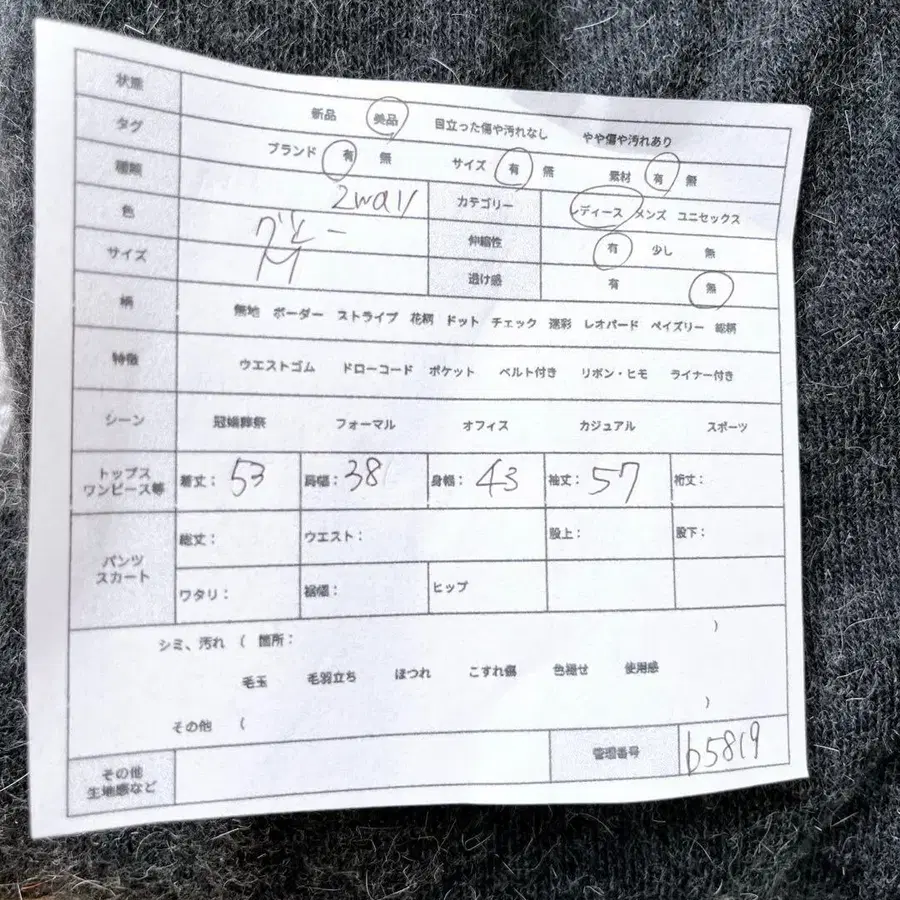 状態 新品 美品 目立った傷や汚れなし やや傷や汚れあり
タグ ブランド 有 無 サイズ 有 無 素材 有 無
種類 2way カテゴリー レディース メンズ ユニセックス
色 グレー 伸縮性 有 少し 無
サイズ M 透け感 有 無
柄 無地 ボーダー ストライプ 花柄 ドット チェック 迷彩 レオパード ペイズリー 総柄
特徴 ウエストゴム ドローコード ポケット ベルト付き リボン・ヒモ ライナー付き
シーン 冠婚葬祭 フォーマル オフィス カジュアル スポーツ
トップス
ワンピース等 着丈: 53 肩幅: 38 身幅: 43 袖丈: 57 裄丈:
パンツ
スカート
総丈: ウエスト: 股上: 股下:
ワタリ: 裾幅: ヒップ
シミ、汚れ ( 箇所: )
毛玉 毛羽立ち ほつれ こすれ傷 色褪せ 使用感
その他 ( )
その他
生地感など 管理番号 b5819